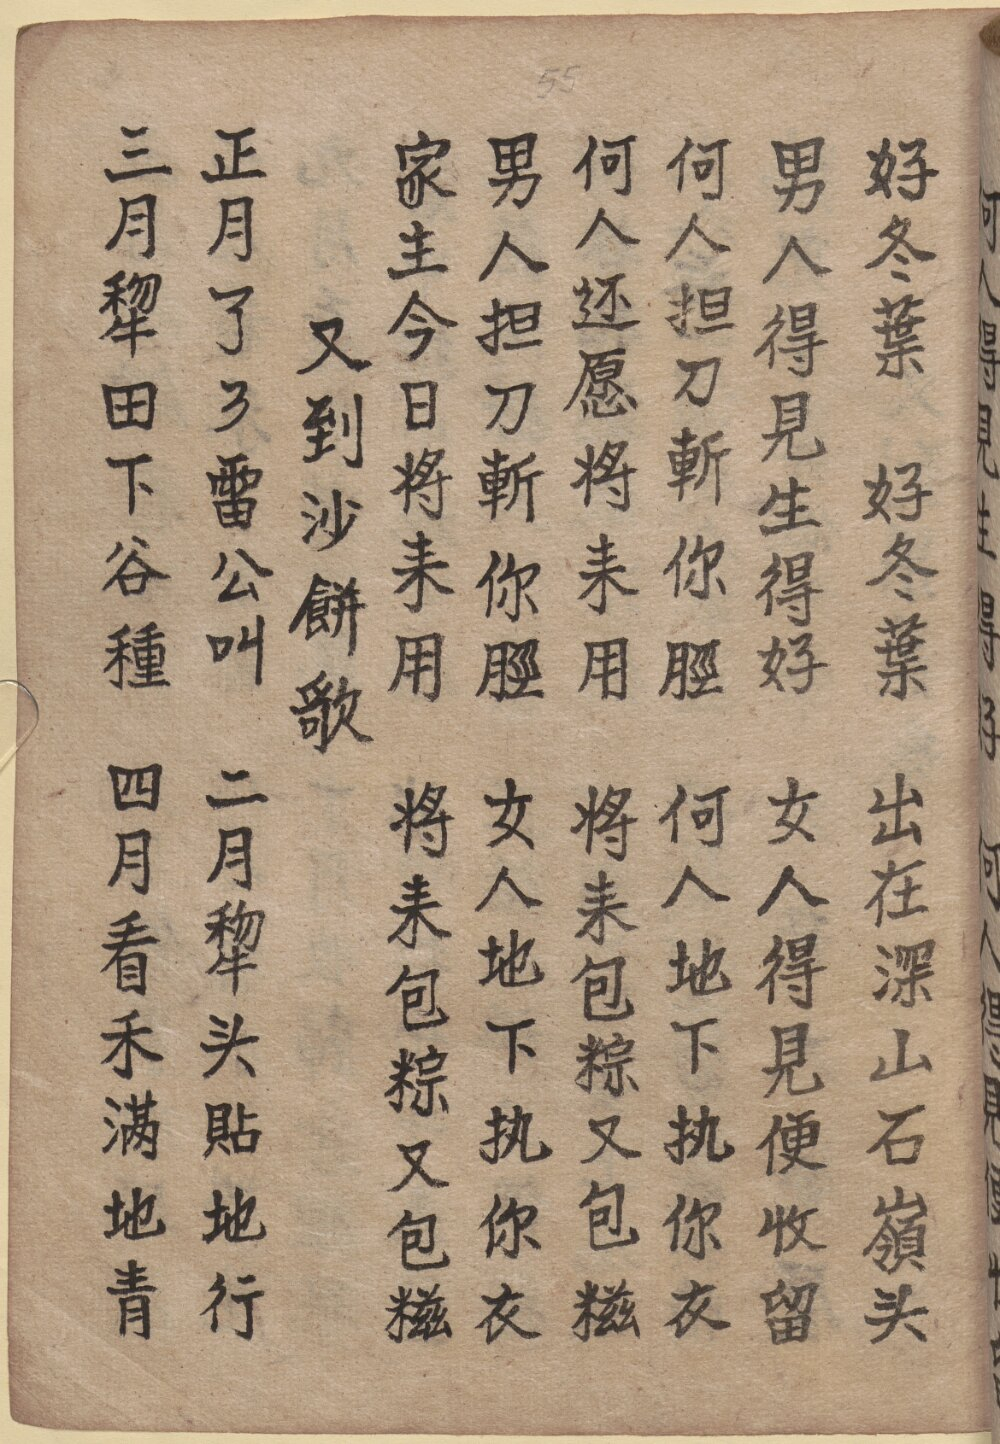 55
好冬葉 好冬葉 出在深山石嶺头
男人得見生得好 女人得見便收留
何人担刀斬你脛 何人地下执你衣
何人还愿将来用 将来包粽又包糍
男人担刀斬你脛 女人地下执你衣
家主今日将来用 将来包粽又包糍
又到沙餅歌
正月了了雷公叫 二月犂头貼地行
三月犂田下谷種 四月看禾满地青